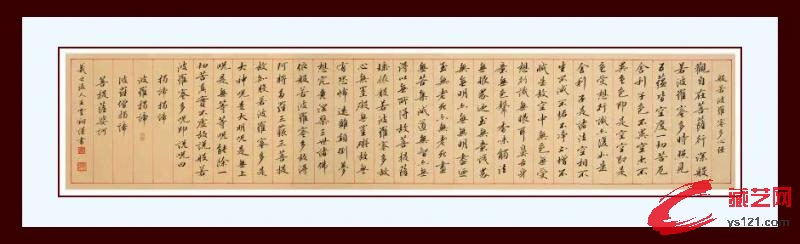 般若波羅蜜多心經
觀自在菩薩行深般
若波羅蜜多時照見
五蘊皆空度一切苦厄
舍利子色不異空空不
異色色即是空空即是
色受想行識亦復如是
舍利子是諸法空相不
生不滅不垢不淨不增不
減是故空中無色無受
想行識無眼耳鼻舌身
意無色聲香味觸法
無眼界乃至無意識界
無無明亦無無明盡乃
至無老死亦無老死盡
無苦集滅道無智亦無
得以無所得故菩提薩
埵依般若波羅蜜多故
心無罣礙無罣礙故無
有恐怖遠離顛倒夢
想究竟涅槃三世諸佛
依般若波羅蜜多故得
阿耨多羅三藐三菩提
故知般若波羅蜜多是
大神咒是大明咒是無上
咒是無等等咒能除一
切苦真實不虛故說般若
波羅蜜多咒即說咒曰
揭諦揭諦
波羅揭諦
波羅僧揭諦
菩提薩婆訶
羲之後人王雲謹書
藏艺网
ys121.com